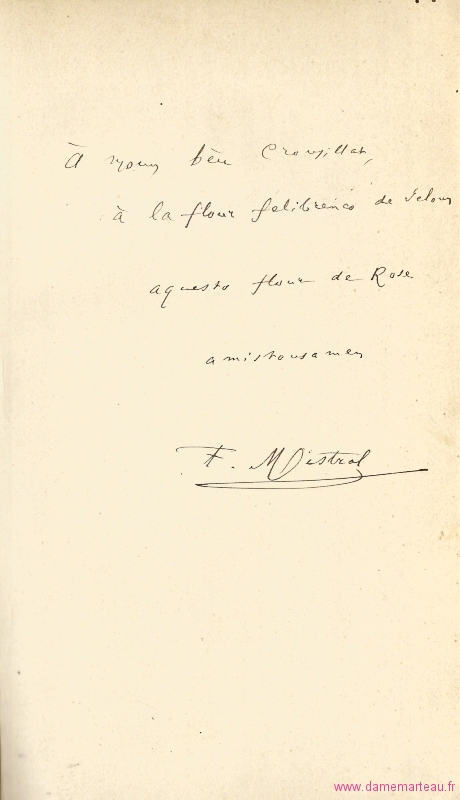 À moun bèu Crousillat,
à la flour felibrenco de Seloun
aquesto flour de Rose
amistousamen
F. Mistral
www.damemarteau.fr